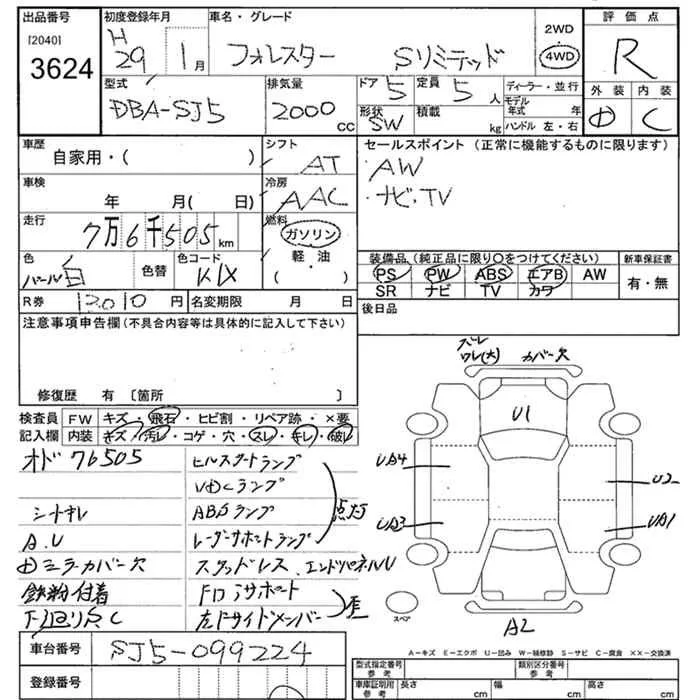 出品番号 初度登録年月 車名・グレード 2WD 評価点
[2040] H 4WD
3624 29 1月 フォレスター Sリミテッド R
型式 排気量 ドア 定員 ディーラー・並行 外装 内装
DBA-SJ5 2000 CC 5 5人 モデル年式 年 D C
形状 積載 ハンドル 左・右
SW kg
車歴 シフト セールスポイント（正常に機能するものに限ります）
自家用・（ ） AT AW
車検 冷房 ナビ・TV
年 月（ 日） AAC
走行 燃料
7万6千505km ガソリン
軽油
色 色替 色コード 装備品（純正品に限り○をつけてください） 新車保証書
パール白 K1X PS PW ABS エアB AW 有・無
SR ナビ TV カワ
R券 12010円 名変期限 月 日 後日品
注意事項申告欄（不具合内容等は具体的に記入して下さい）
修復歴 有〔箇所 〕
検査員 FW キズ・飛石・ヒビ割・リペア跡・×要
記入欄 内装 キズ・汚レ・コゲ・穴・スレ・キレ・破レ
オド 76505 ヒルスタートランプ
VDCランプ
シートキレ ABSランプ 点灯
A.U レーダーサポートランプ
ミラーカバー欠 スタッドレス、エンドパネルU
鉄粉付着 Fロアサポート
下回りS C 左Fサイドメンバー 歪
ズレ
ワレ(大) カバー欠
U1
UA4 U2
UA3 UA1
スペア A2
A－キズ E－エクボ U－凹み W－補修跡 S－サビ C－腐食 ××－交換済
車台番号 SJ5-099224
登録番号 型式指定番号 参考 類別区分番号 参考
車庫証明用 参考 長さ cm 幅 cm 高さ cm